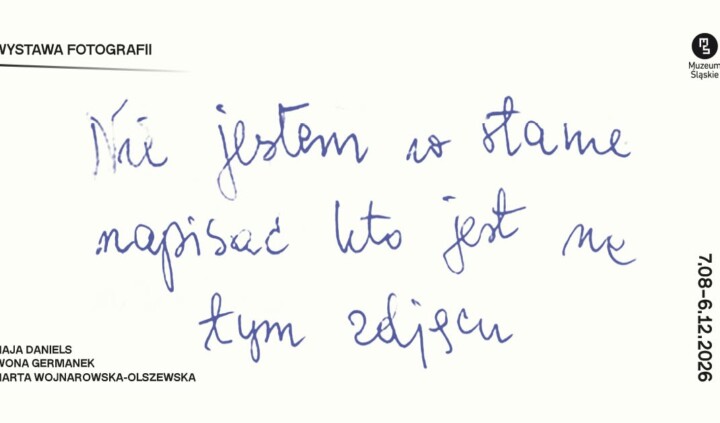 WYSTAWA FOTOGRAFII
Muzeum
Śląskie
Nie jestem w stanie
napisać kto jest na
tym zdjęciu
7.08–6.12.2026
MAJA DANIELS
IWONA GERMANEK
MARTA WOJNAROWSKA-OLSZEWSKA